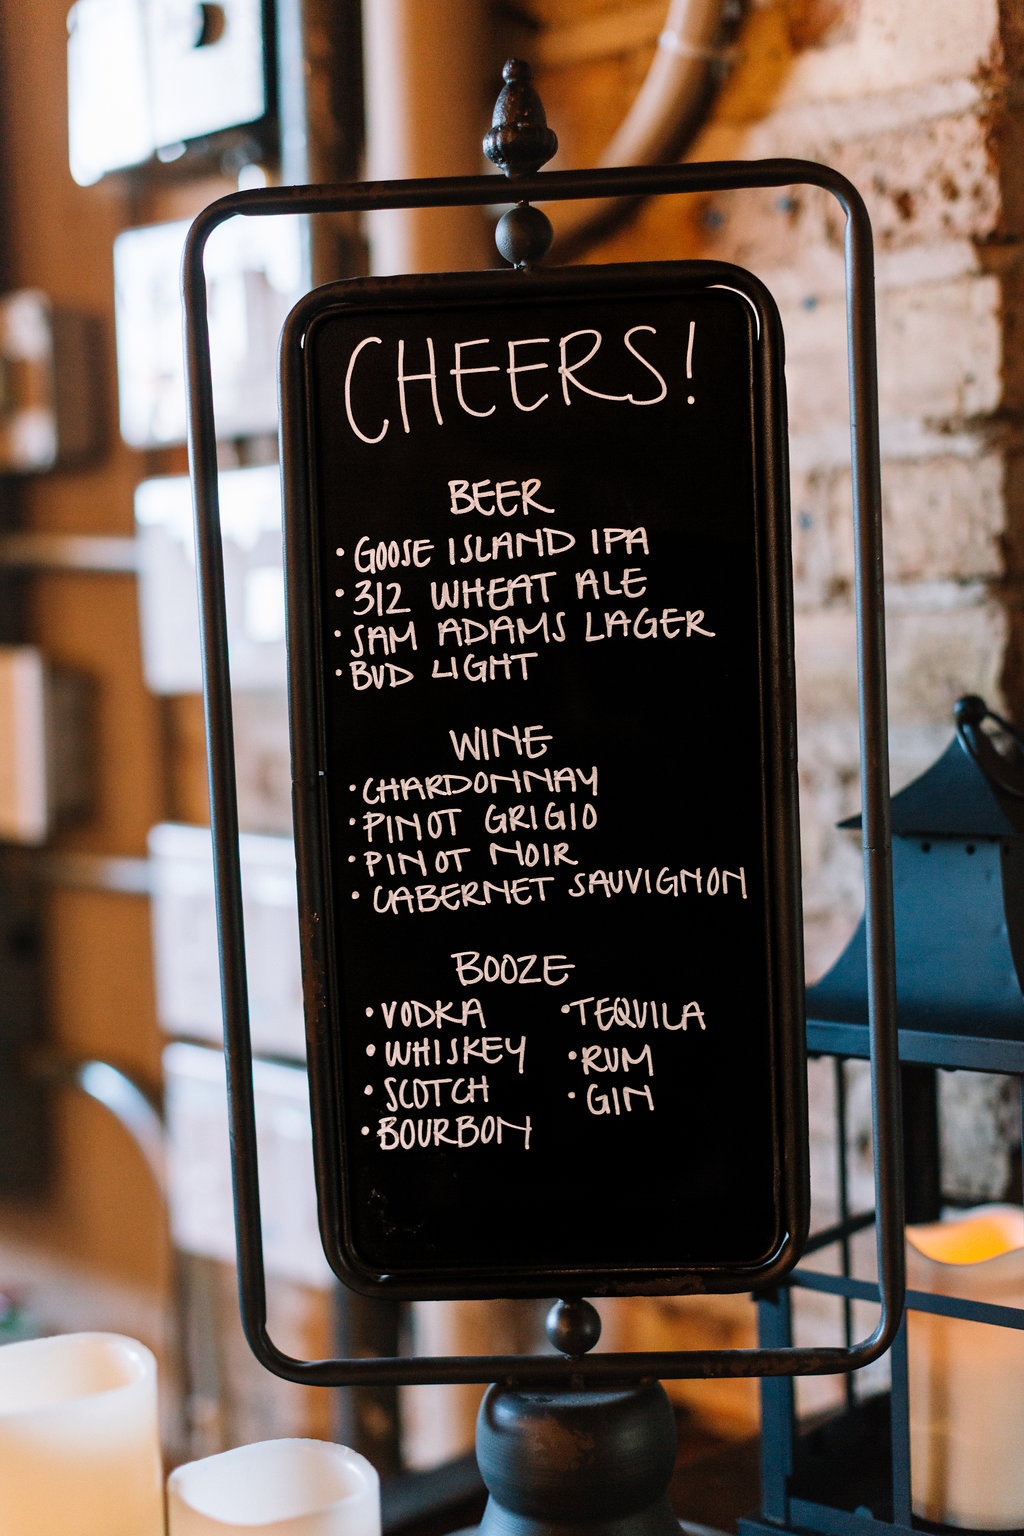 CHEERS!
BEER
• GOOSE ISLAND IPA
• 312 WHEAT ALE
• SAM ADAMS LAGER
• BUD LIGHT
WINE
• CHARDONNAY
• PINOT GRIGIO
• PINOT NOIR
• CABERNET SAUVIGNON
BOOZE
• VODKA • TEQUILA
• WHISKEY • RUM
• SCOTCH • GIN
• BOURBON